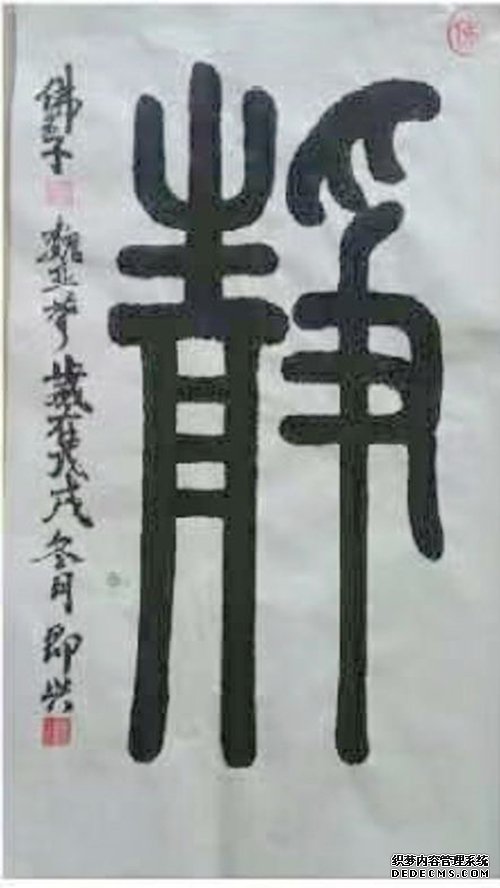 靜
佛子 歲在戊戌冬月即兴
织梦内容管理系统
DEDECMS.COM